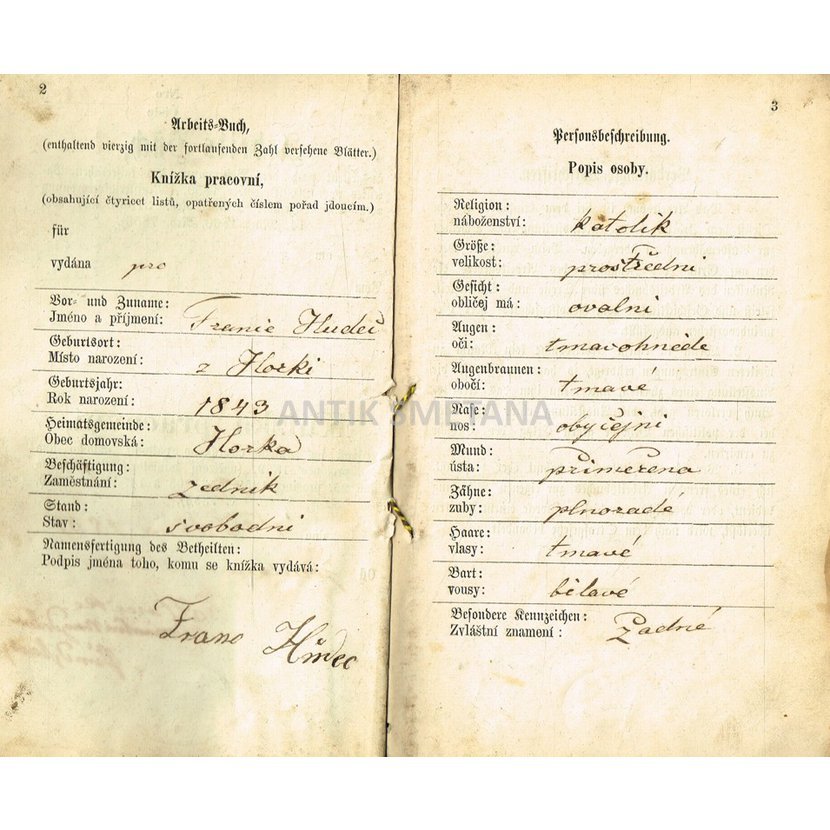 2
Arbeits-Buch,
(enthaltend vierzig mit der fortlaufenden Zahl versehene Blätter.)
Knížka pracovní,
(obsahující čtyricet listů, opatřených číslem pořad jdoucím.)
für
vydána pro
Vor- und Zuname:
Jméno a příjmení:
Geburtsort:
Místo narození: z Horki
Geburtsjahr:
Rok narození: 1843
Heimatsgemeinde:
Obec domovská: Horka
Beschäftigung:
Zaměstnání: zednik
Stand:
Stav: svobodni
Namensfertigung des Betheilten:
Podpis jména toho, komu se knížka vydává:
3
Personsbeschreibung.
Popis osoby.
Religion:
náboženství: katolik
Größe:
velikost: prostředni
Gesicht:
obličej má: ovalni
Augen:
oči: tmavohnède
Augenbraunen:
obočí: tmavé
Nase:
nos: obyčejni
Mund:
ústa: přiměřena
Zähne:
zuby: plnoradé
Haare:
vlasy: tmavé
Bart:
vousy: bělavé
Besondere Kennzeichen:
Zvláštní znamení: Žadné
ANTIK SMETANA